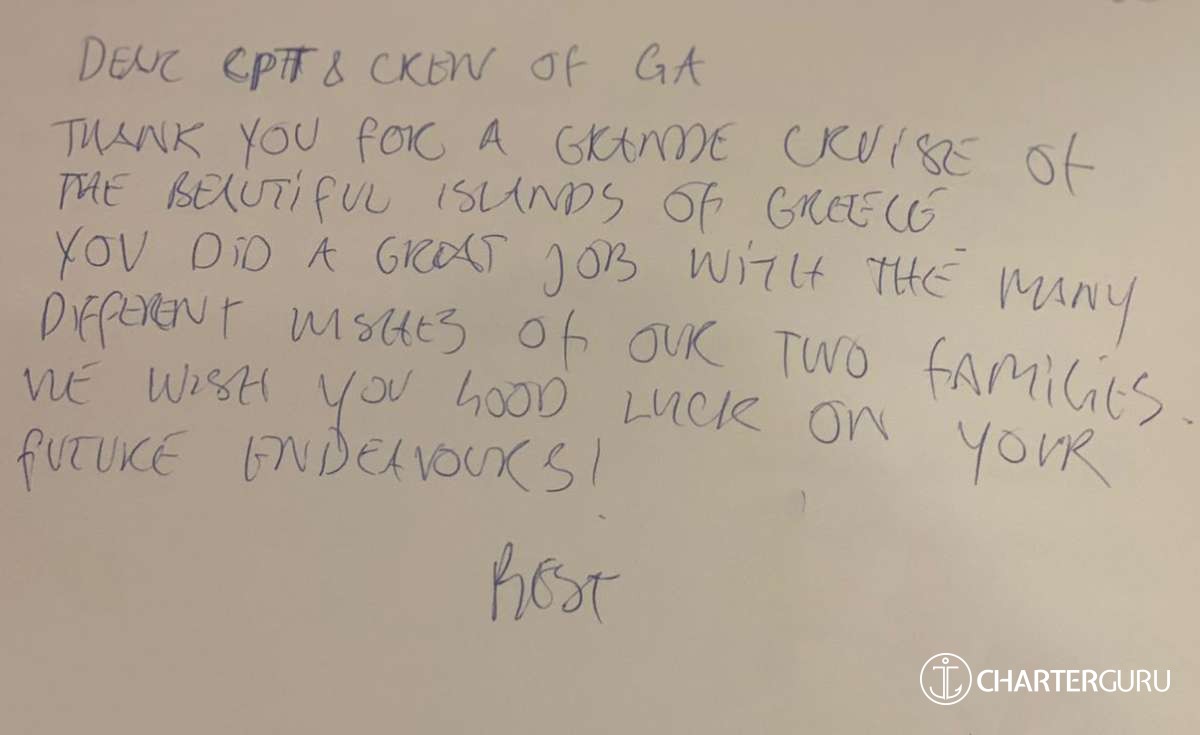 DEAR CPT & CREW OF GA
THANK YOU FOR A GRANDE CRUISE OF
THE BEAUTIFUL ISLANDS OF GREECE
YOU DID A GREAT JOB WITH THE MANY
DIFFERENT WISHES OF OUR TWO FAMILIES.
WE WISH YOU GOOD LUCK ON YOUR
FUTURE ENDEAVOURS!
BEST
CHARTERGURU